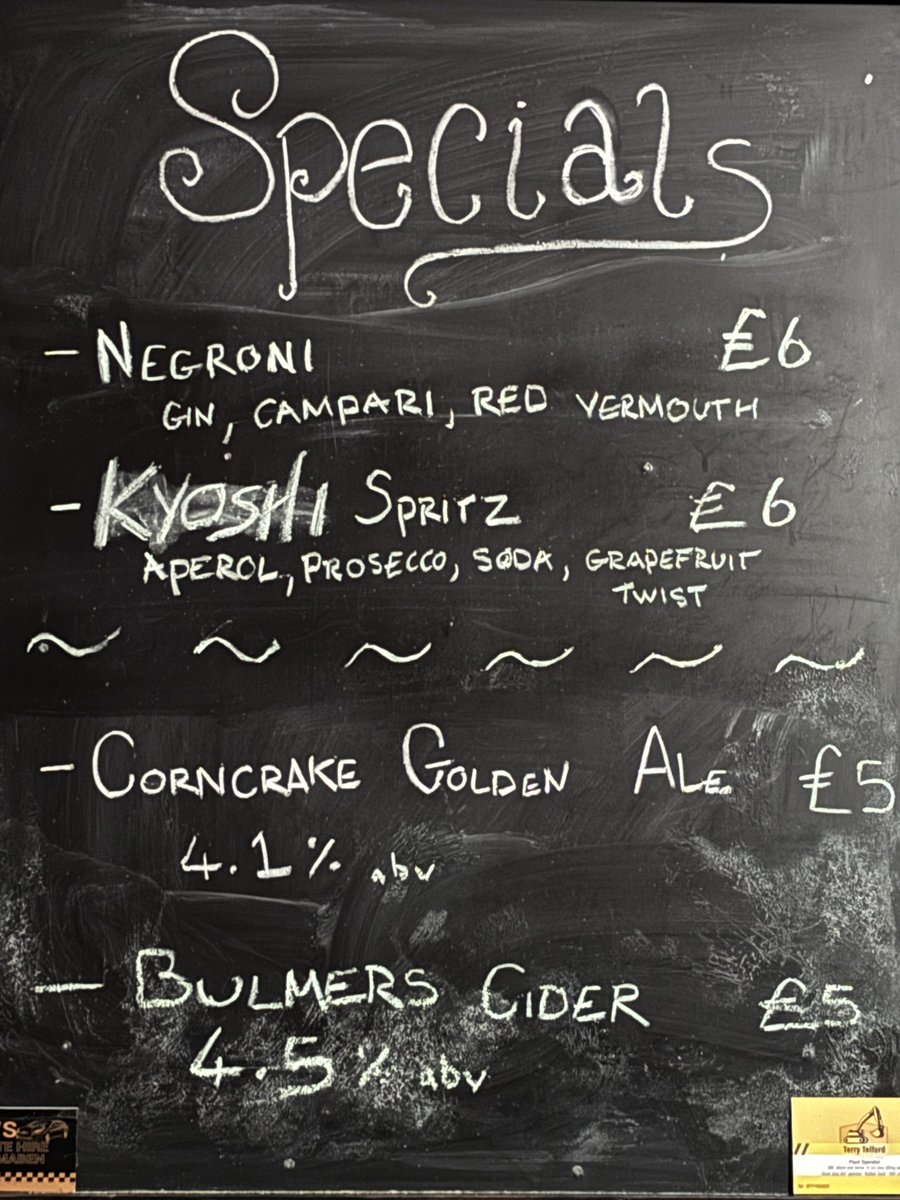 Specials
- NEGRONI £6
GIN, CAMPARI, RED VERMOUTH
- KYOSHI SPRITZ £6
APEROL, PROSECCO, SODA, GRAPEFRUIT
TWIST
~ ~ ~ ~ ~ ~
- CORNCRAKE GOLDEN ALE £5
4.1% abv
- BULMERS CIDER £5
4.5% abv
Terry Telford